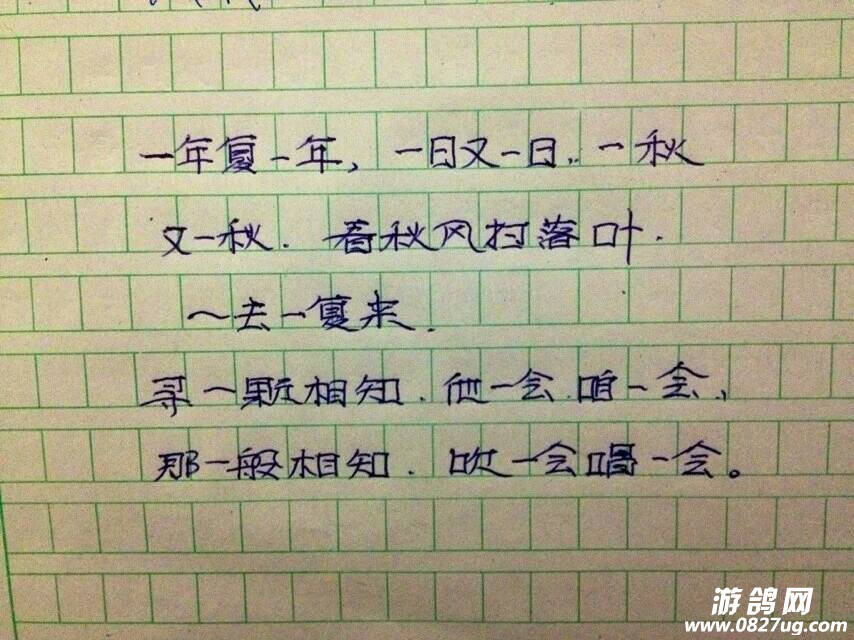 一年复一年，一日又一日．一秋
又一秋．看秋风扫落叶．
一去一复来．
寻一颗相知．他一会咱一会、
那一般相知．吹一会唱一会。
游鸽网
www.0827ug.com